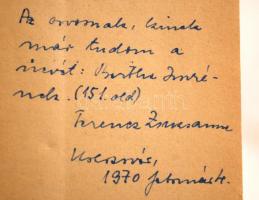 Az orvosnak, kinek
már tudom a
nevét: Bartha Imré-
nek. (151. old)
Ferencz Zsuzsanna
Kolozsvár,
1970